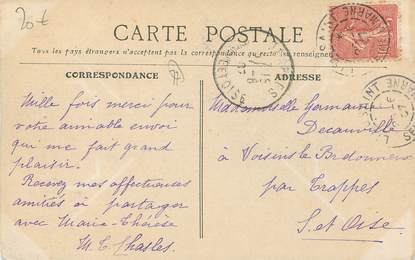 20€
CARTE POSTALE
Tous les pays étrangers n'acceptent pas la correspondance au recto (se renseigner
CORRESPONDANCE
ADRESSE
Mille fois merci pour
votre aimable envoi
qui me fait grand
plaisir.
Recevez mes affectueuses
amitiés à partager
avec Marie-Thérèse
M. C. Chasles.
Mademoiselle Germaine
Decauville
à Voisins le Bretonneux
par Trappes
S. et Oise